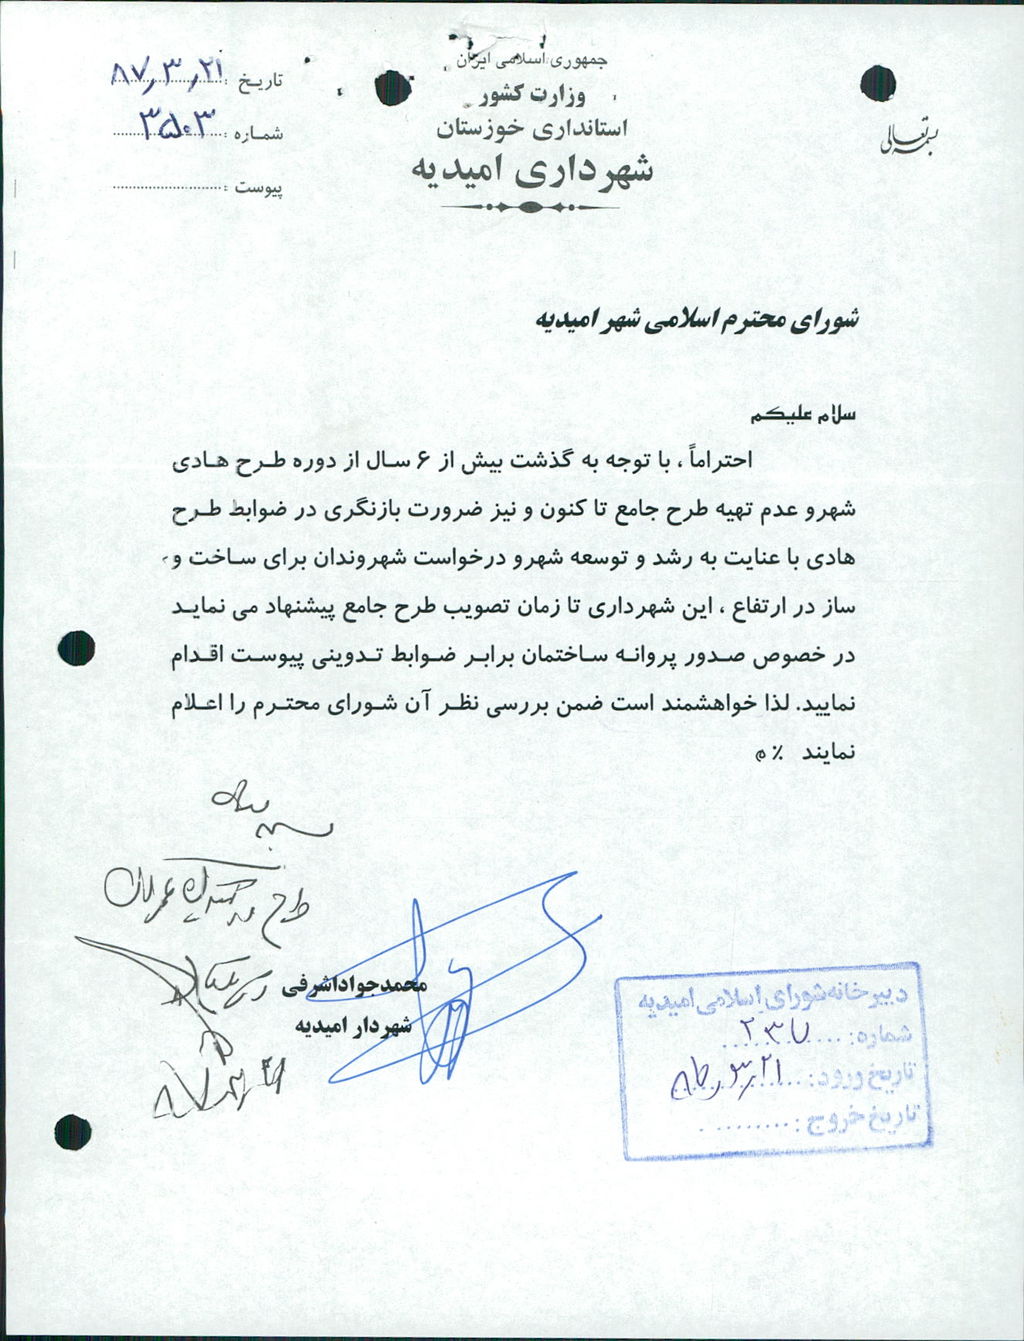 بسمه تعالی
جمهوری اسلامی ایران
وزارت کشور
استانداری خوزستان
شهرداری امیدیه
تاریخ : ۸۷٫۳٫۲۱
شماره : ۳۵۰۳
پیوست :
شورای محترم اسلامی شهر امیدیه
سلام علیکم
احتراماً ، با توجه به گذشت بیش از ۶ سال از دوره طرح هادی
شهرو عدم تهیه طرح جامع تا کنون و نیز ضرورت بازنگری در ضوابط طرح
هادی با عنایت به رشد و توسعه شهرو درخواست شهروندان برای ساخت و
ساز در ارتفاع ، این شهرداری تا زمان تصویب طرح جامع پیشنهاد می نماید
در خصوص صدور پروانه ساختمان برابر ضوابط تدوینی پیوست اقدام
نمایید. لذا خواهشمند است ضمن بررسی نظر آن شورای محترم را اعلام
نمایند ٪ م
طرح در کمیسیون عمران
محمدجواداشرفی
شهردار امیدیه
دبیرخانه شورای اسلامی امیدیه
شماره: ۲۳۷
تاریخ ورود: ۸۷٫۳٫۲۱
تاریخ خروج :